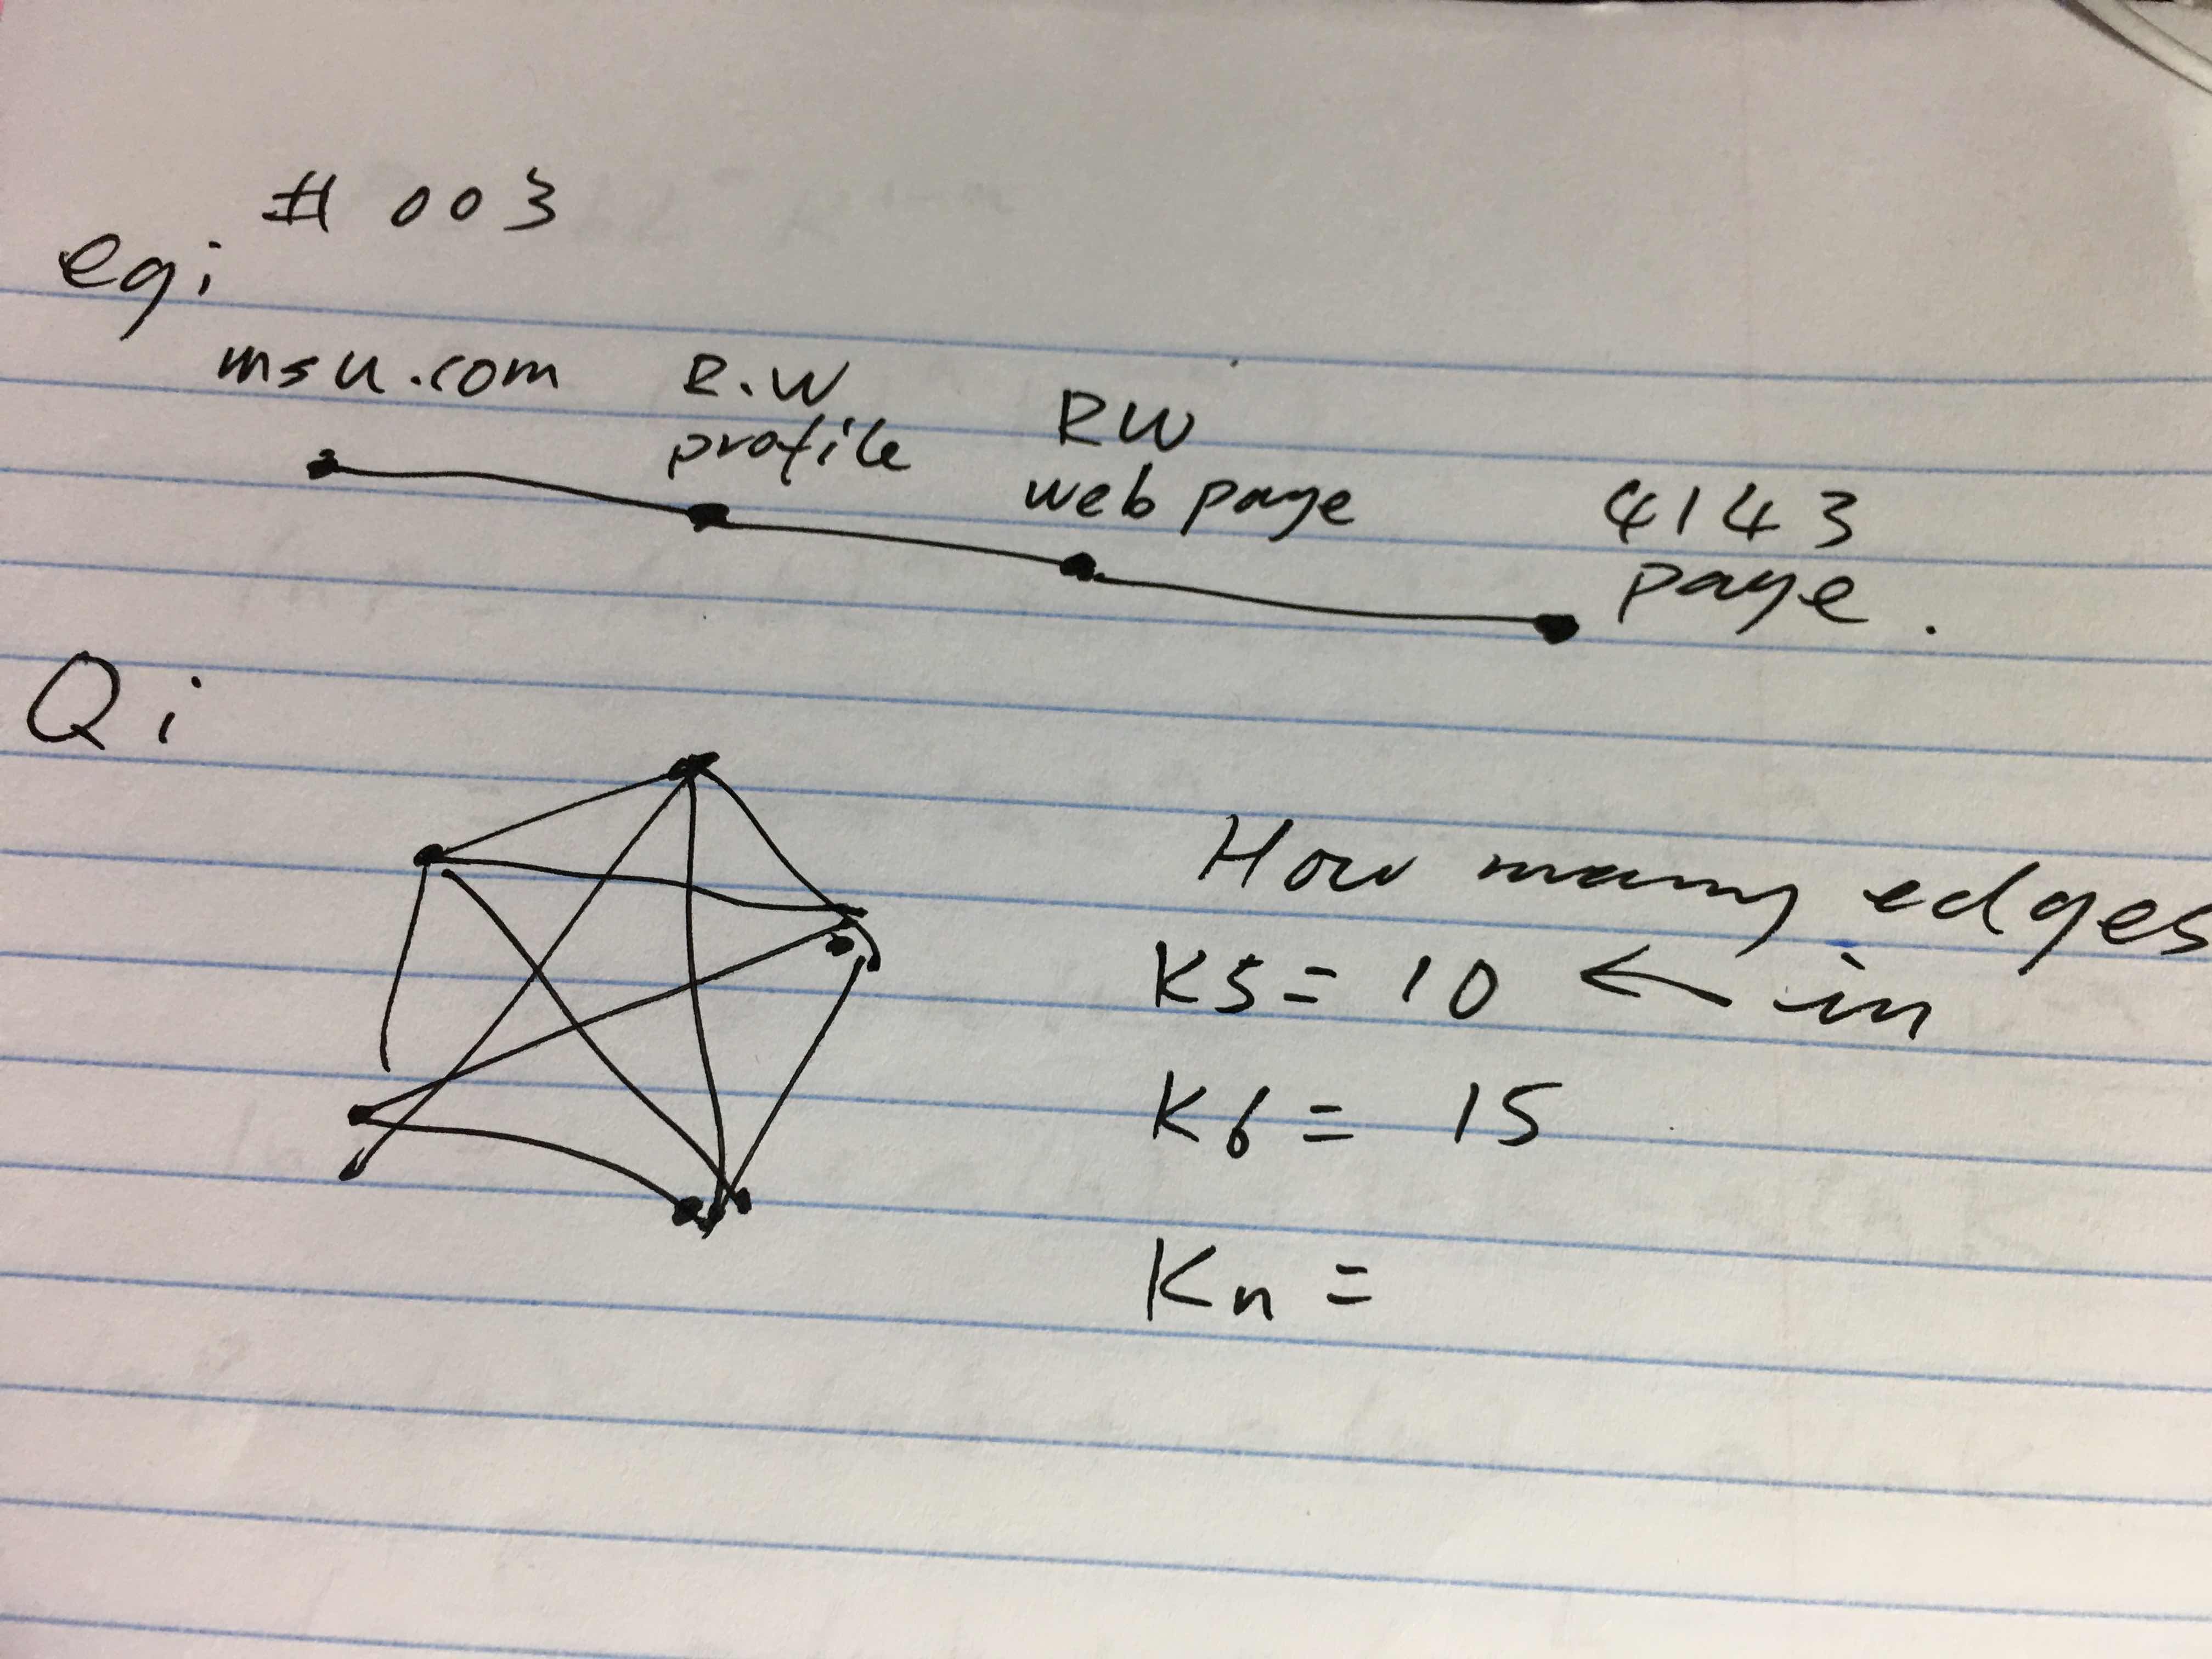 # 003
eg:
msu.com R.W RW 4143
profile web page page.
Q:
How many edges
K5 = 10 ← in
K6 = 15
Kn =